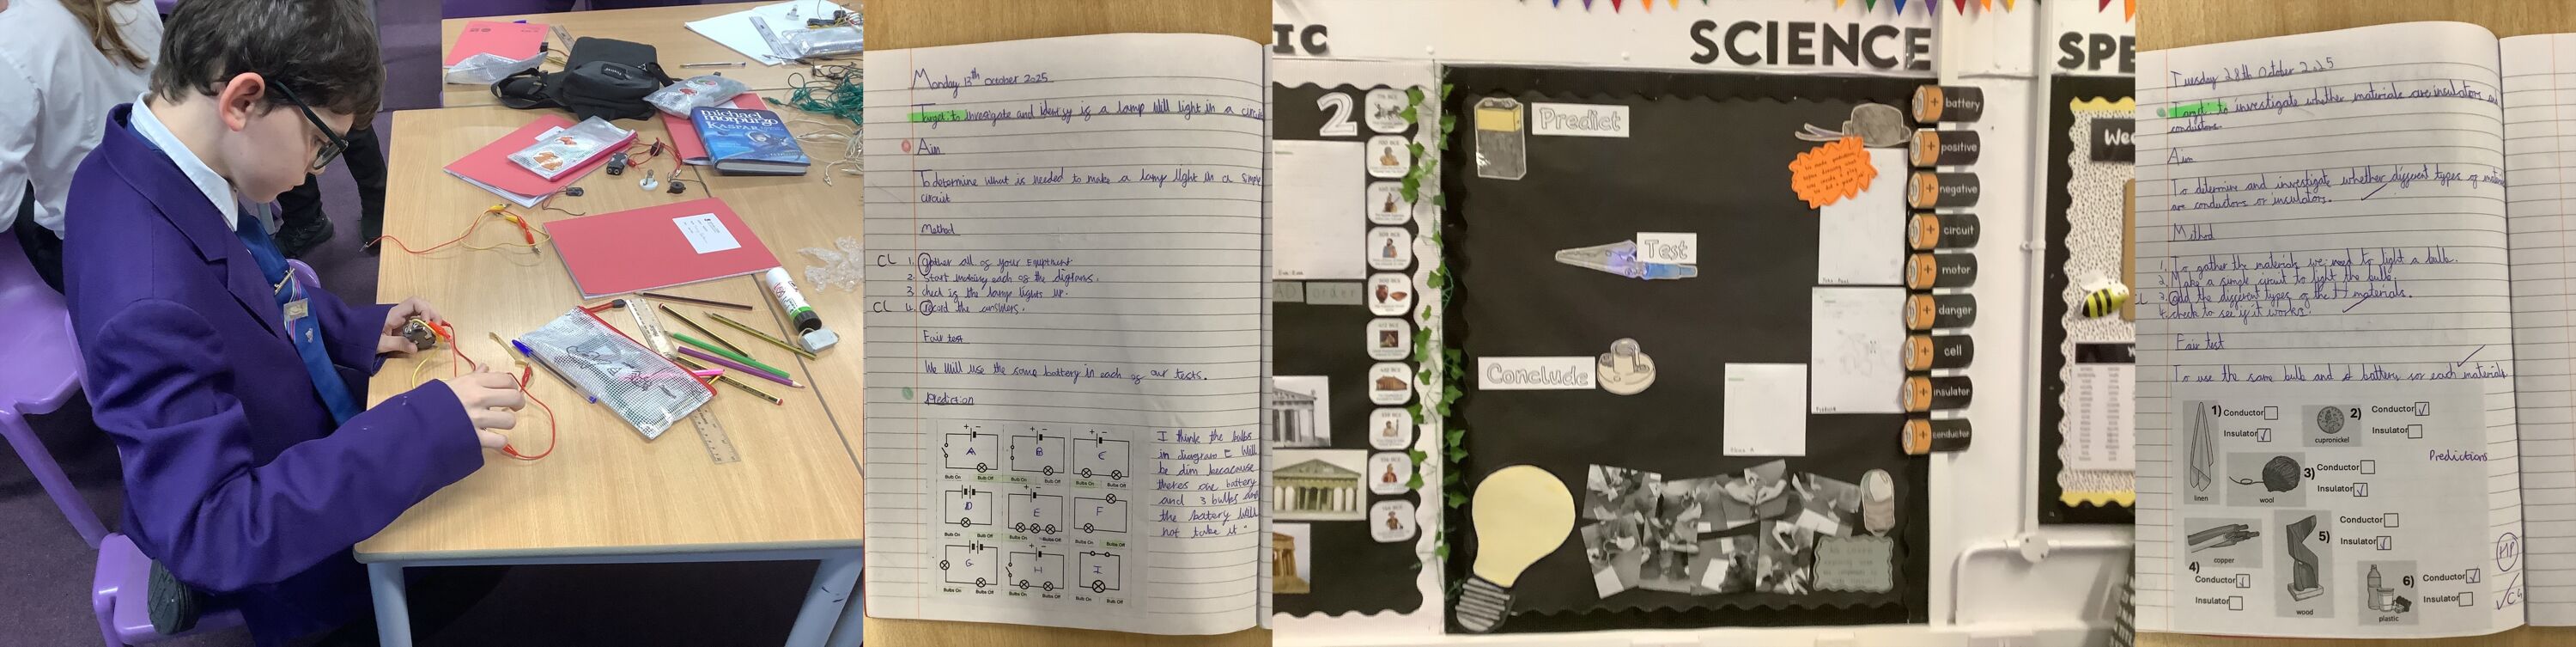 michael
morpurgo
KASPAR
Monday 13th October 2025
Target to investigate and identify is a lamp will light in a circuit
Aim
To determine what is needed to make a lamp light in a simple
circuit
Method
CL 1. Gather all of your Equipment
2. Start making each of the digrams.
3. check is the lamp lights up.
CL 4. Record the answers.
Fair test
We will use the same battery in each of our tests.
Prediction
A
B
C
Bulb On Bulb Off
Bulb On Bulb Off
Bulbs On Bulbs Off
D
E
F
Bulb On Bulb Off
Bulbs On Bulbs Off
Bulbs On Bulbs Off
G
H
I
Bulbs On Bulbs Off
Bulbs On Bulbs Off
Bulb On Bulb Off
I think the bulbs
in diagram E will
be dim becacouse
theres one battery
and 3 bulbs and
the battery will
not take it
IC
SCIENCE
SPE
2
order
Predict
Test
Conclude
battery
positive
negative
circuit
motor
danger
cell
insulator
conductor
Wee
Tuesday 28th October 2025
Target to investigate whether materials are insulators or
conductors
Aim
To determine and investigate whether different types of material
are conductors or insulators.
Method
1. To gather the materials we need to light a bulb.
2. Make a simple circuit to light the bulb.
3. add the different types of the materials.
4. check to see if it works.
Fair test
To use the same bulb and battery for each materials
1) Conductor
Insulator
linen
2) Conductor
Insulator
cupronickel
Predictions
3) Conductor
Insulator
wool
4) Conductor
Insulator
copper
5) Conductor
Insulator
wood
6) Conductor
Insulator
plastic